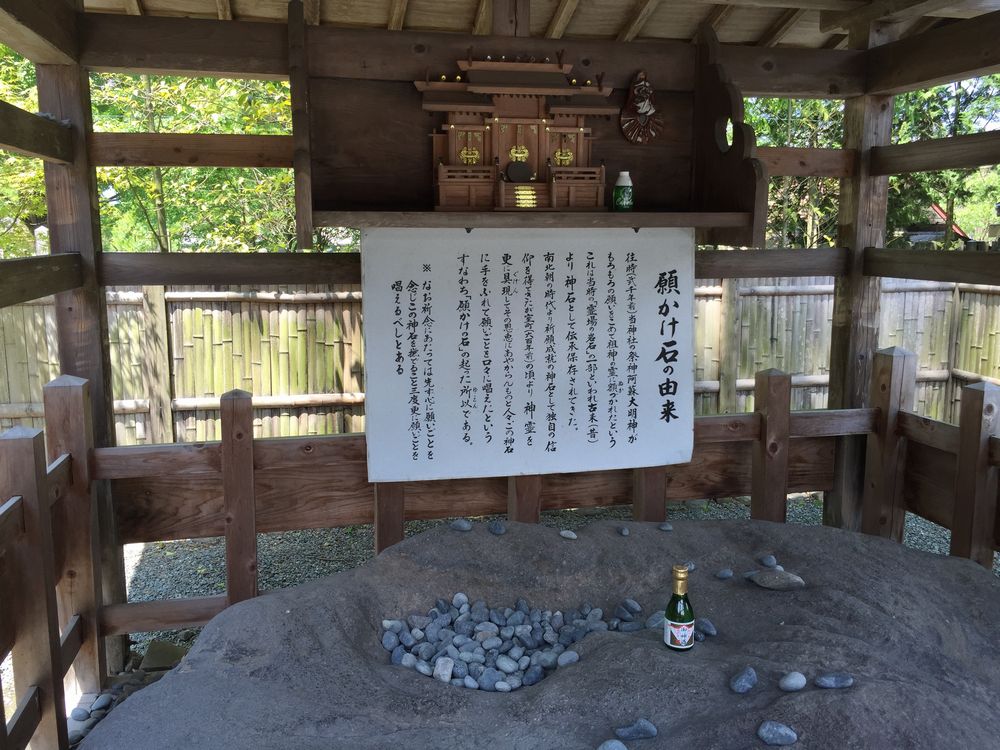 願かけ石の由来
往時(弐千年前)当神社の祭神阿蘇大明神が
もろもろの願いをこめて祖神の霊に額づかれたという
ぬか
これは当時の「霊場の岩石」の一部といわれ古来(昔)
より神石として伝承保存されてきた。
南北朝の時代より祈願成就の神石として独自の信
仰を得てきたが室町(六百年前)の頃より神霊を
更に具現しとその恩恵にあやからんものと人々この神石
ぐげん
に手をふれて願いごとを口々に唱えたという
すなわち「願かけの石」の起った所以である。
ゆえん
※なお祈念にあたっては先ず心に願いごとを
念じこの神石を撫でること三度更に願いごとを
唱えるべしとある
御神酒